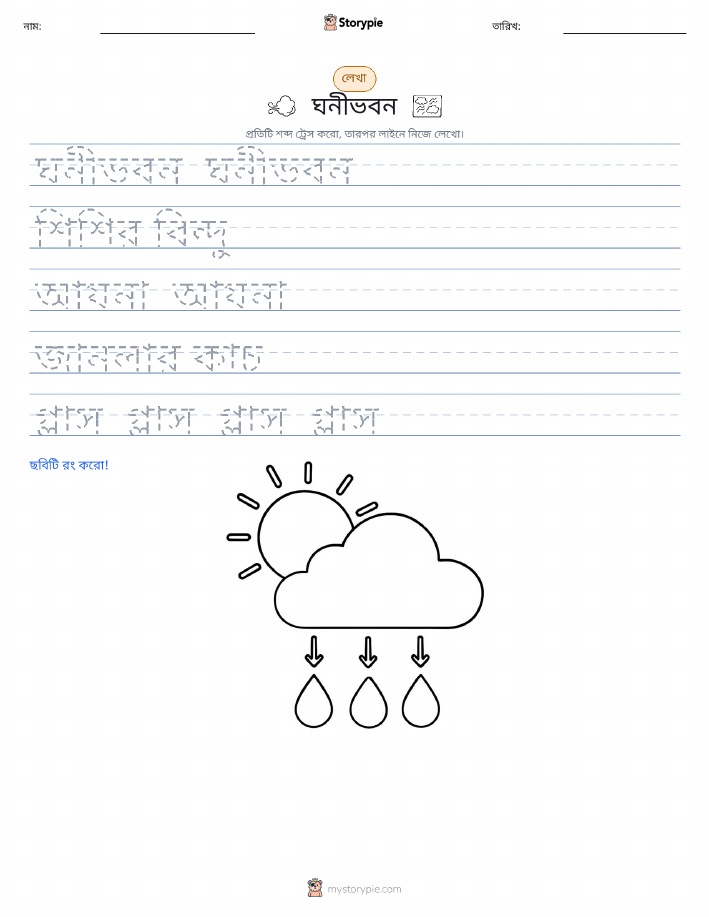 নাম:
Storypie
তারিখ:
লেখা
ঘনীভবন
প্রতিটি শব্দ ট্রেস করো, তারপর লাইনে নিজে লেখো।
ঘনীভবন ঘনীভবন
শিশির বিন্দু
আয়না আয়না
জানলার কাচ
গ্লাস গ্লাস গ্লাস গ্লাস
ছবিটি রং করো!
mystorypie.com